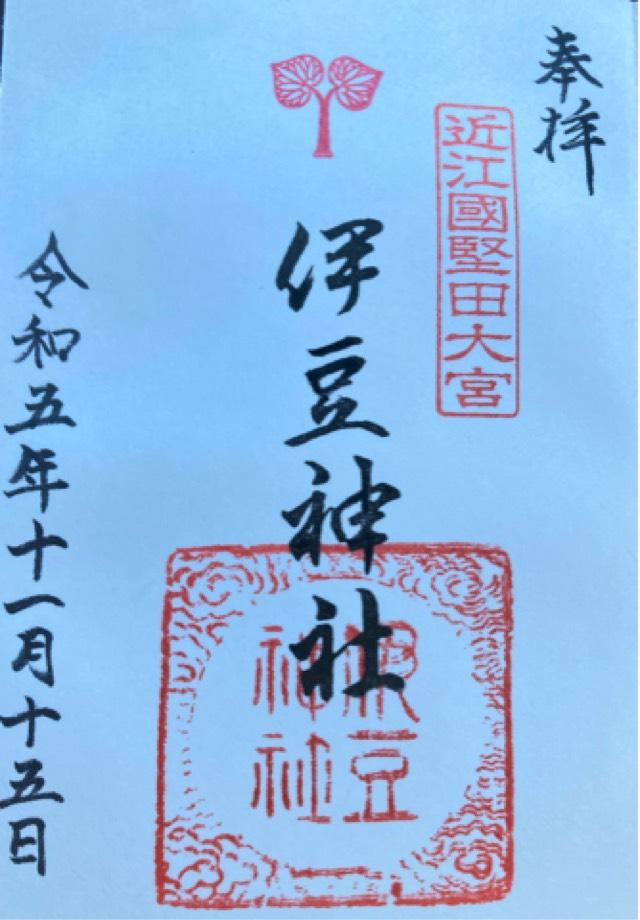 奉拝
近江國堅田大宮
伊豆神社
伊豆神社
令和五年十一月十五日